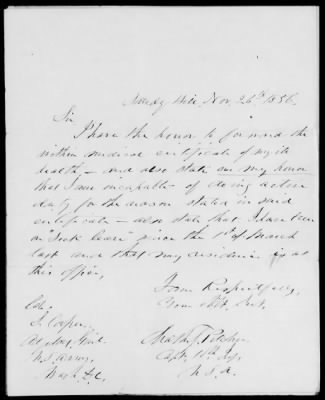 Sandy Hill, Nov. 26th 1856.
Sir
I have the honor to forward the
within medical certificate of my ill
health, - and also state on my honor
that I am incapable of doing active
duty for the reason stated in said
certificate - also state that I have been
on "Sick leave" since the 1st of March
last and that my residence is at
this office,
Your Respectfully,
Your obt. Svt.
Col.
S. Cooper
Adjt. Genl.
U.S. Army,
Wash. D.C.
Capt. 10th Inf.
U.S.A.